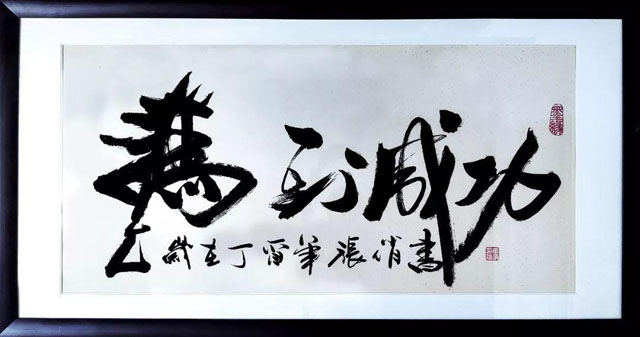 馬到成功
歲在丁酉年張俏書